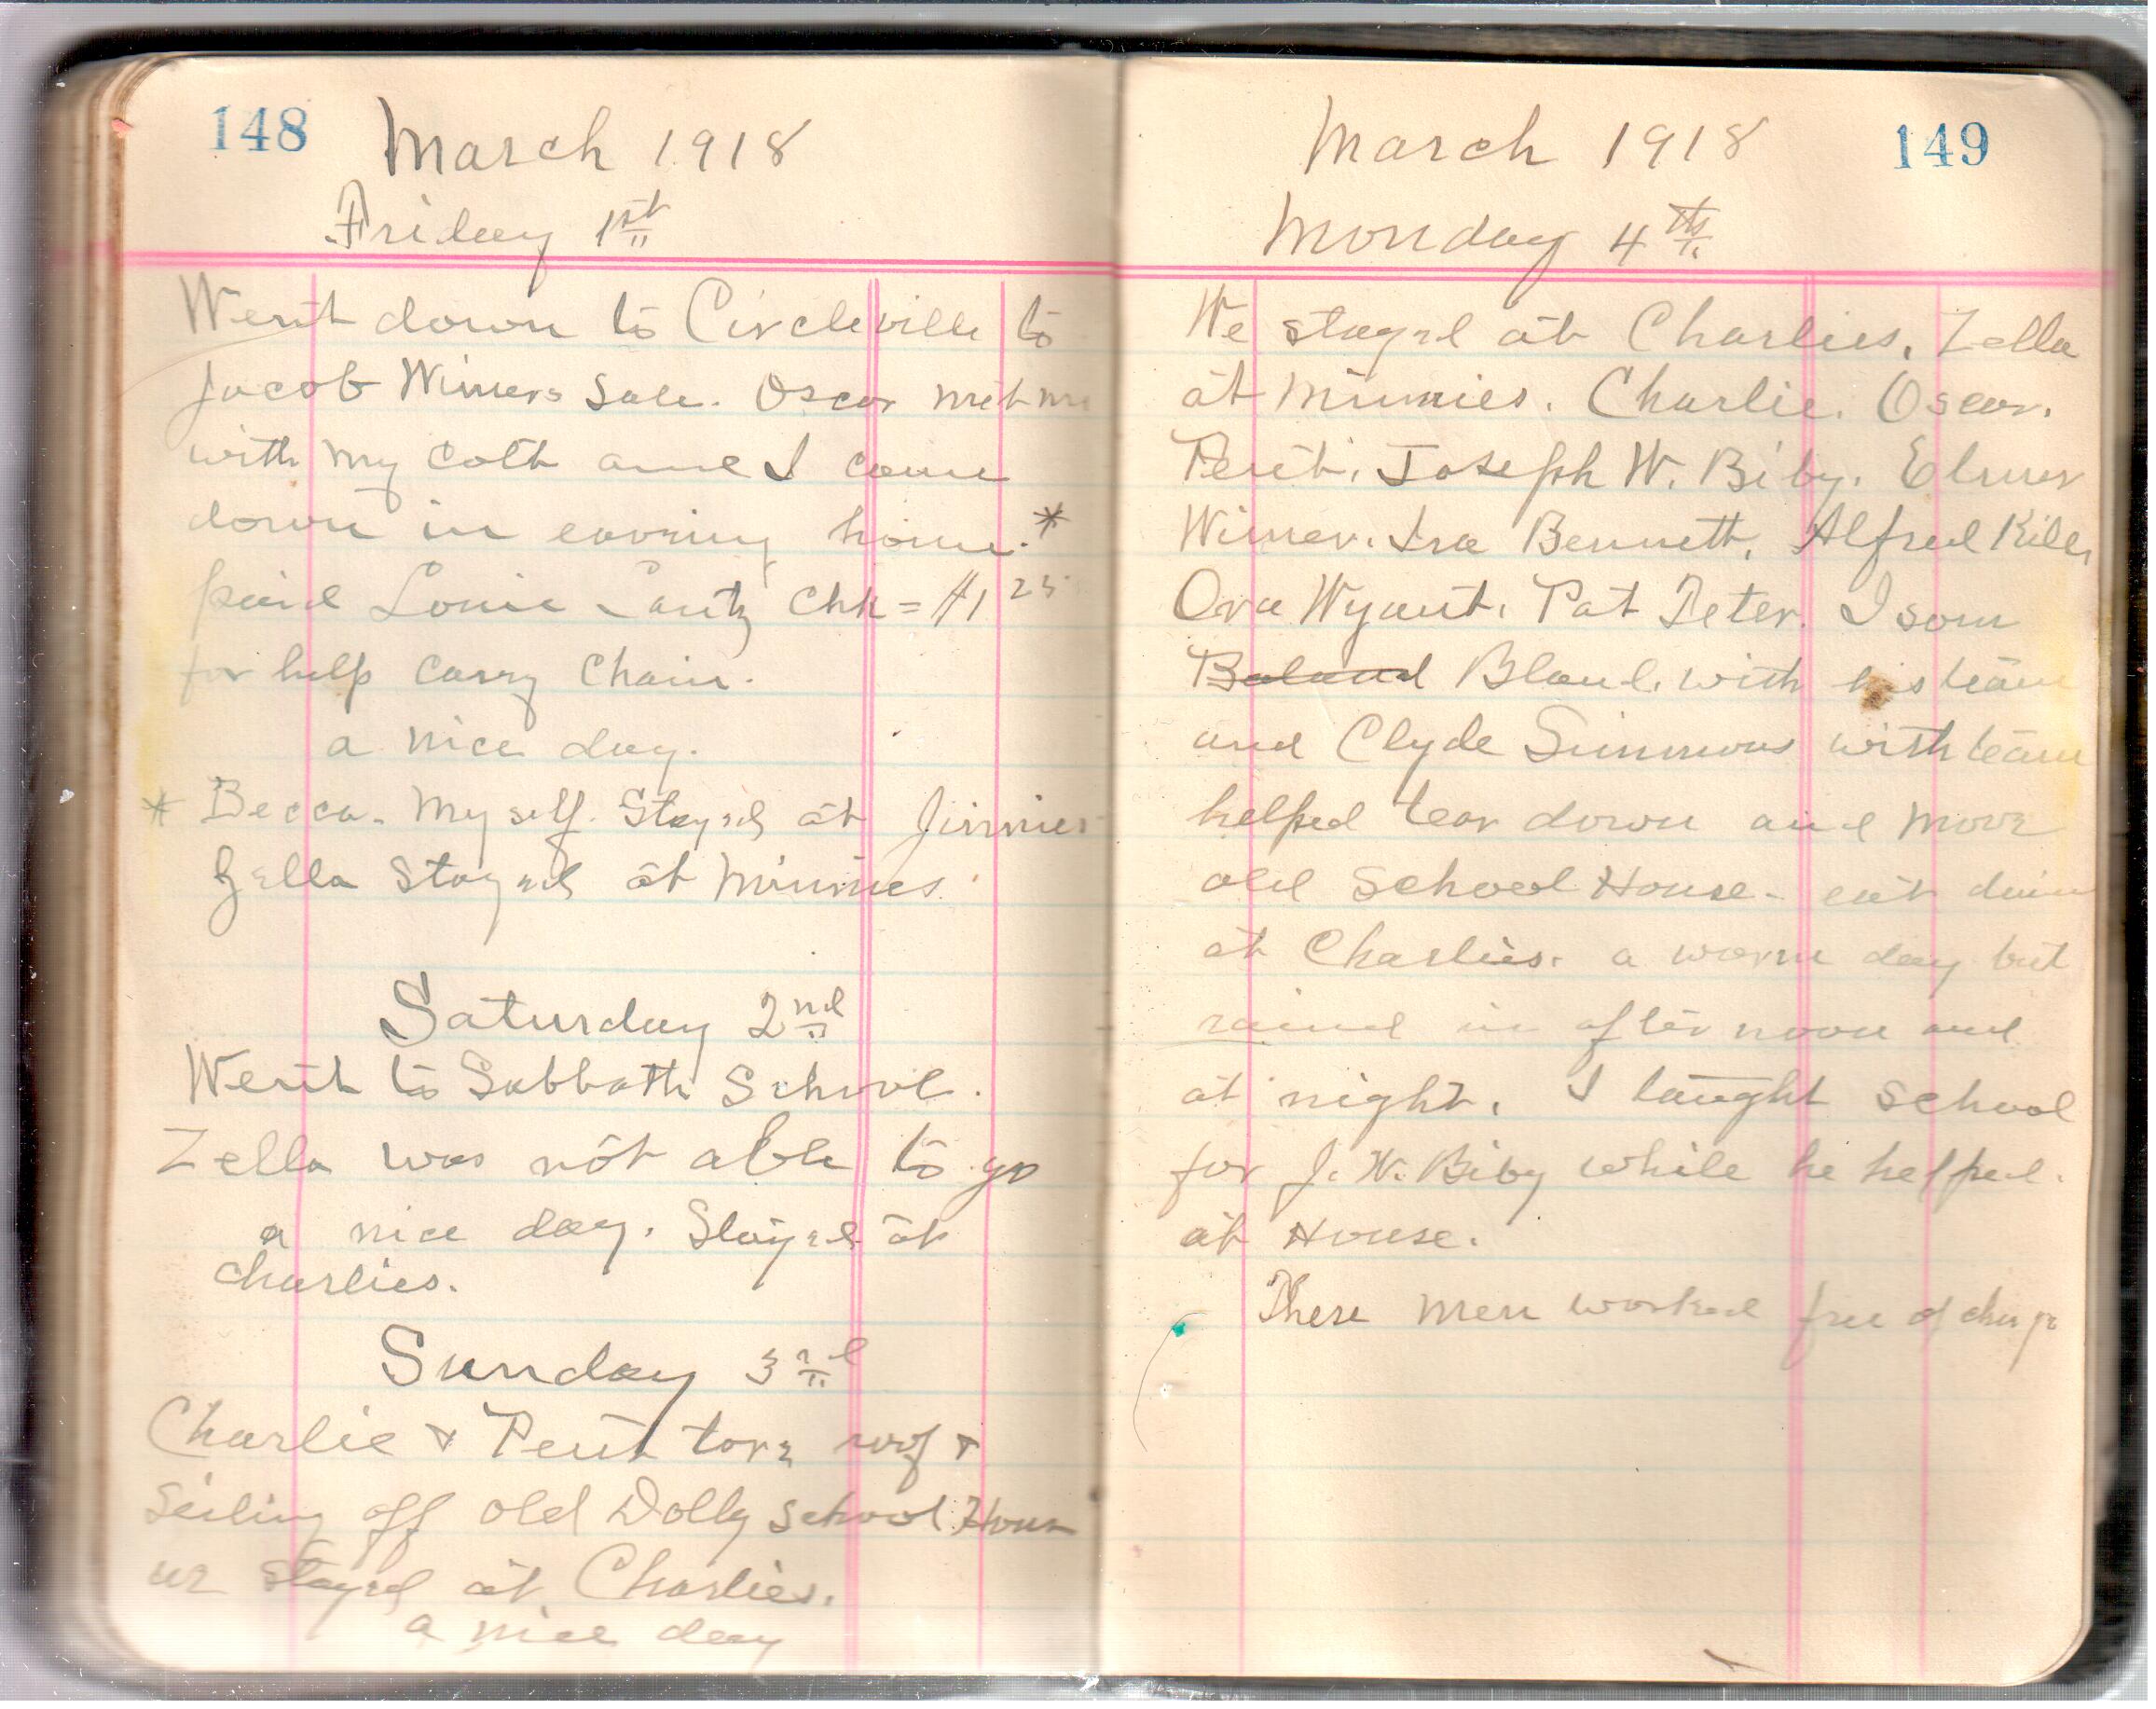 148 March 1918
Friday 1st
Went down to Circleville to
Jacob Wimers Sale. Oscar met me
with my colt and I come
down in evening home.*
paid Louie Lantz Chk = $1 25
for help carry Chain.
a nice day.
* Becca. Myself. Stayed at Jimmies
Zella Stayed at Minnies.
Saturday 2nd
Went to Sabbath School.
Zella was not able to go
a nice day. Stayed at
Charlies.
Sunday 3rd
Charlie & Pent tore roof &
Seiling off old Dolly School House
we stayed at Charlies.
a nice day
March 1918 149
Monday 4th
We stayed at Charlies. Zella
at Minnies. Charlie. Oscar.
Pent. Joseph W. Biby. Elmer
Wimer. Ira Bennett. Alfred
Ora Wyant. Pat Teter. Isom
Boland Bland. with his team
and Clyde Simmons with team
helped tear down and move
old School House - eat
at Charlies. a warm day but
rained in after noon and
at night. I taught School
for J. W. Biby while he helped.
at House.
These men worked free of charge